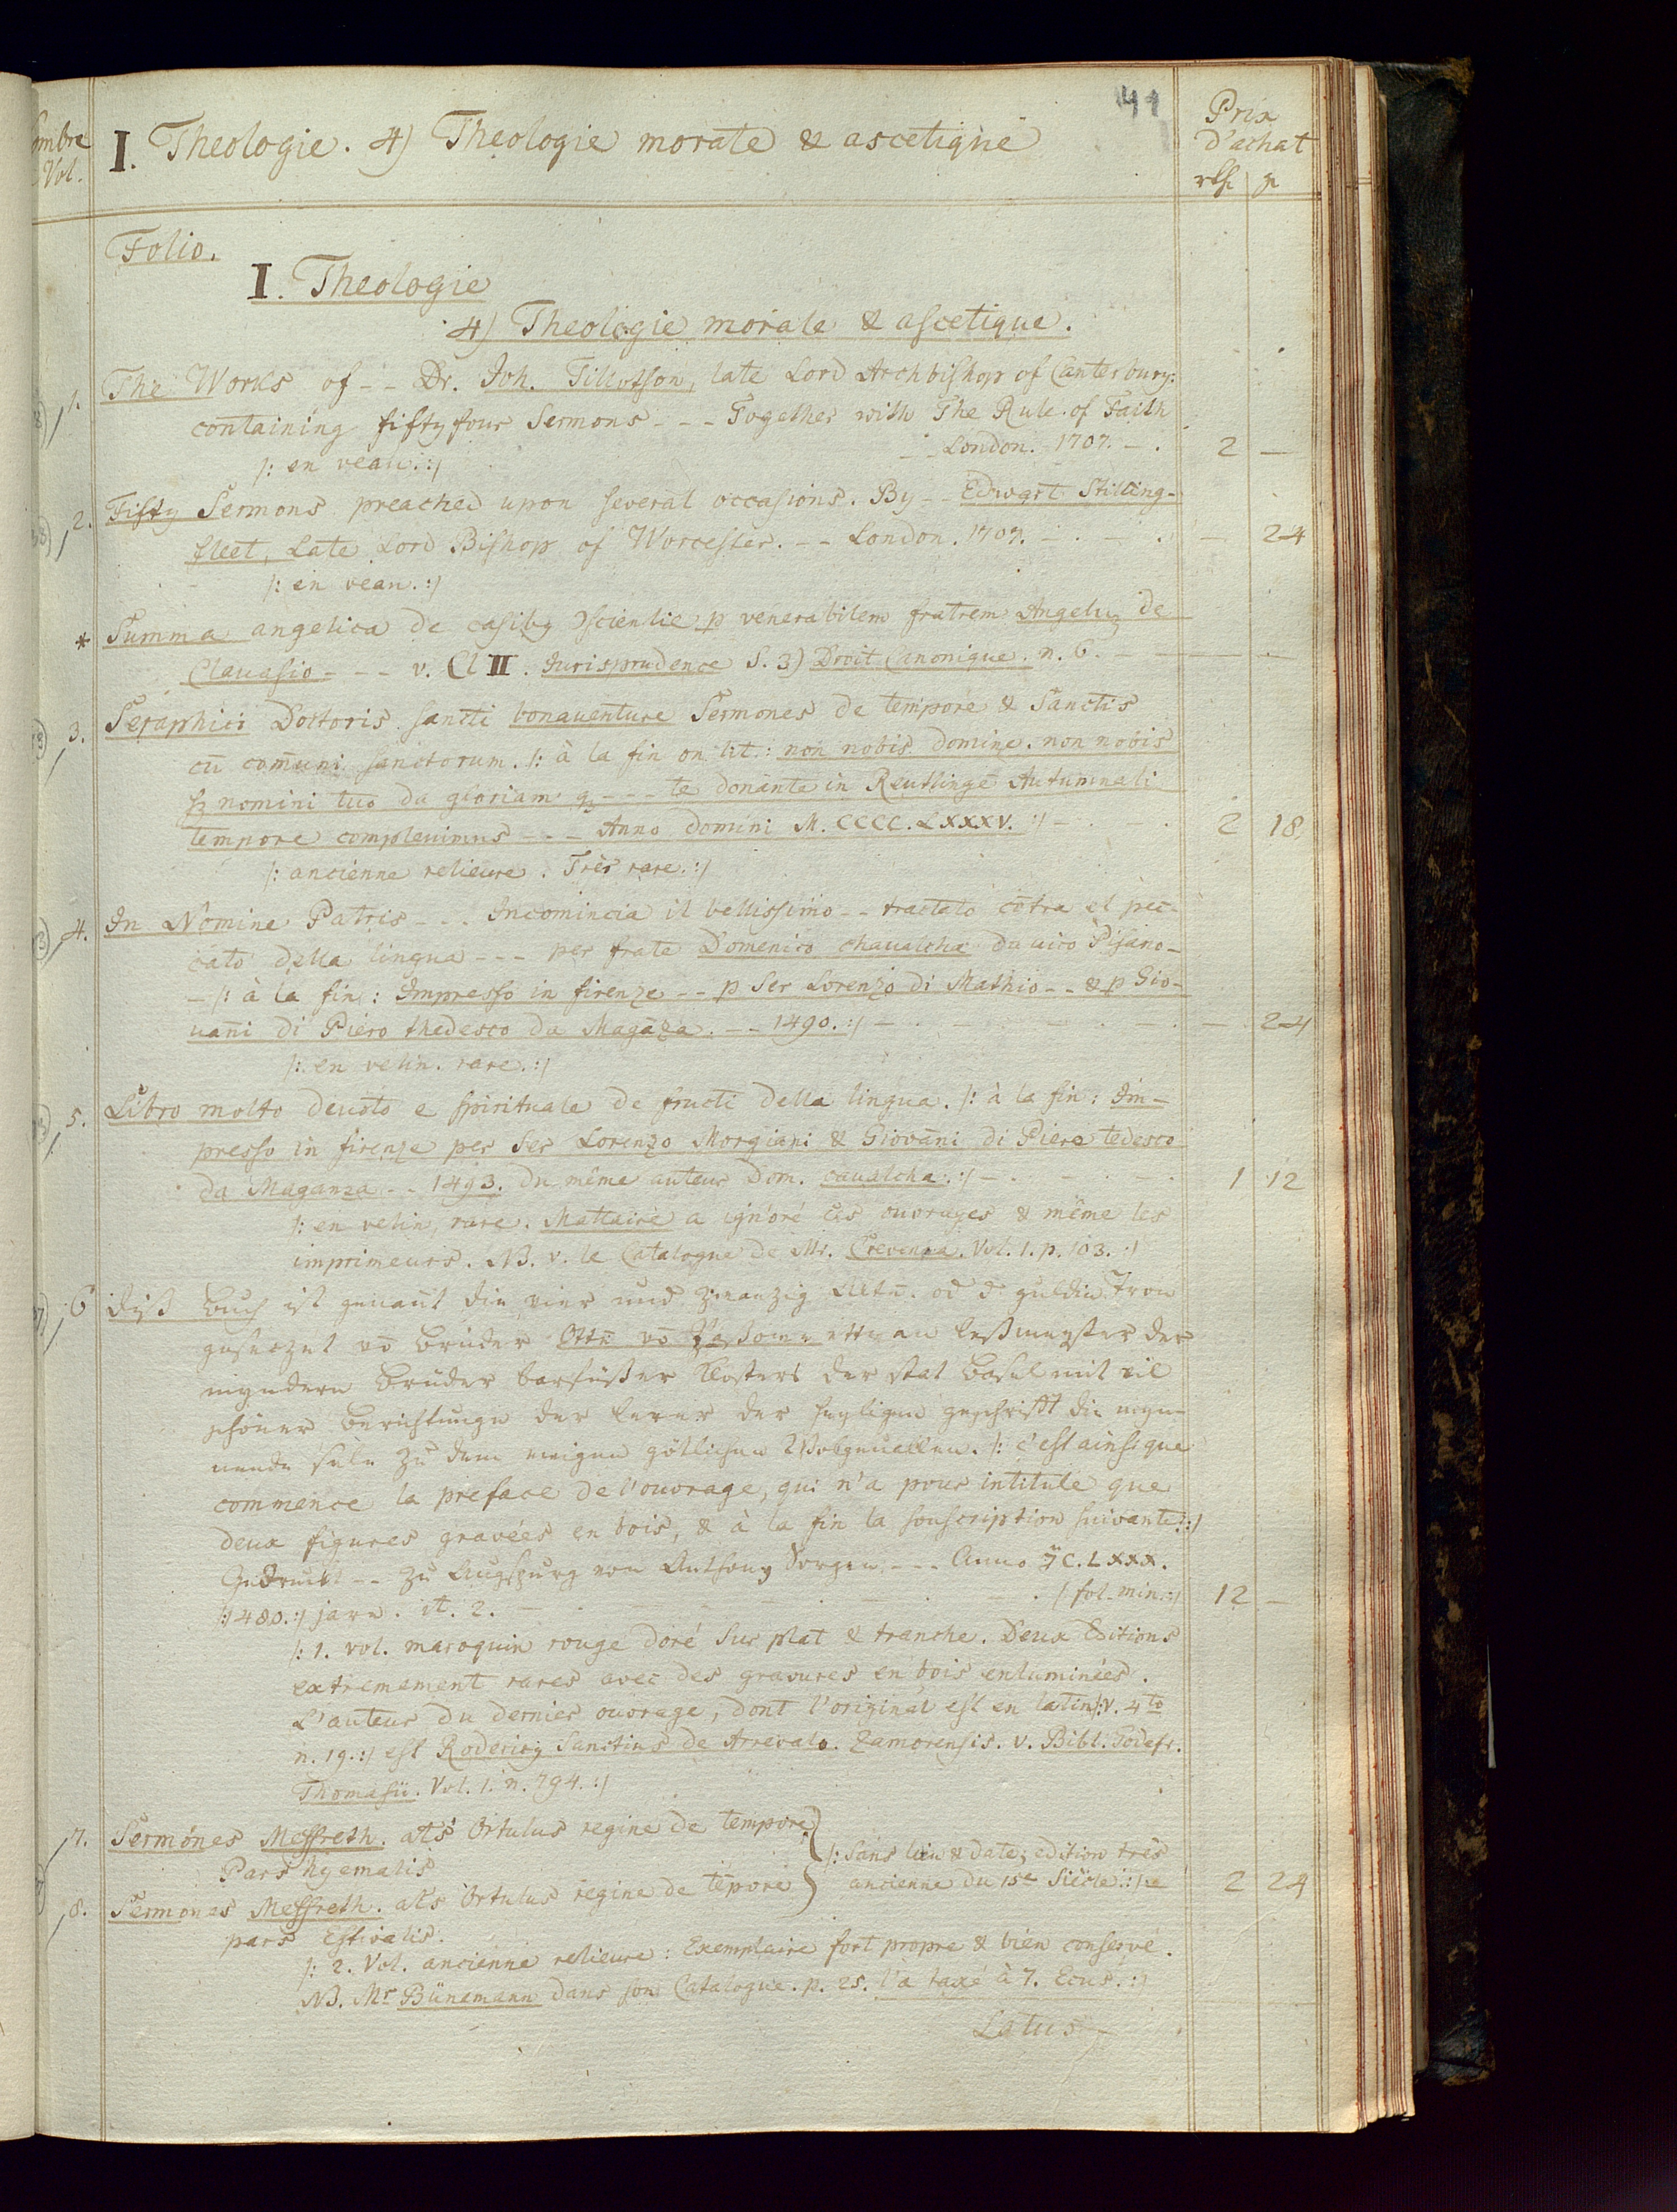 41
I. Theologie. 4) Theologie morale & ascetique
Prix
D'achat
Vol.
Folio.
I. Theologie
4) Theologie morale & ascetique.
1. The Works of -- Dr. Joh. Tillotson, late Lord Archbishop of Canterbury:
containing fifty four Sermons --- Together with The Rule of Faith
-- London. 1707. - . 2 —
/: en veau. :/
2. Fifty Sermons preached upon several occasions. By -- Edwart Stilling-
fleet, Late Lord Bishop of Worcester. -- London. 1707. - . - . — 24
/: en veau. :/
* Summa angelica de casibꝫ ↄscientie p venerabilem fratrem Angelu de
Clauasio --- v. Cl II. Jurisprudence S. 3) Droit Canonique. n. 6. —
3. Seraphici Doctoris sancti bonauenture Sermones de tempore & Sanctis
cū com̄uni sanctorum. /: à la fin on lit: non nobis domine. non nobis
sꝫ nomini tuo da gloriam --- te donante in Reutlingē Autumnali
tempore compleuimus --- Anno domini M. CCCC. LXXXV. :/ - . - . 2 18
/: ancienne relieure. Très rare. :/
4. In Nomine Patris --- Incomincia il bellissimo -- tractato cōtra el pec-
cato della lingua --- per frate Domenico chaualcha da uico Pisano -
- /: à la fin: Impresso in firenze -- p Ser Lorenzo di Mathio -- & p Gio-
uan̄i di Piero thedesco da Magāza. -- 1490. :/ - . — 24
/: en velin. rare. :/
5. Libro molto deuoto e spirituale de fructi della lingua. /: à la fin: Im-
presso in firenze per Ser Lorenzo Morgiani & Giovāni di Piero tedesco
da Maganza -- 1493. du même auteur Dom. caualcha. :/ - . 1 12
/: en velin, rare. Mattaire a ignoré ces ouvrages & même les
imprimeurs. NB. v. le Catalogne de Mr. Crevenna. Vol. 1. p. 103. :/
6 Diß Buch ist genañt die vier und zwanzig Altē. od d' guldin Tron
gesetzet vō Bruder Ottē vō Paßowe ettwan leßmeyster der
myndern Brüder barfüßer Closters der stat Basel mit vil
schöner Berichtunge der lerer der heyligen geschrifft die mẏn-
nende sele zu dem ewigen götlichen Wolgeuallen. /: c'est ainsi que
commence la preface de l'ouvrage, qui n'a pour intitule que
deux figures gravées en bois, & à la fin la souscription suivante: :/
Gedruckt -- zu Augspurg von Anthony Sorgen --- Anno C. LXXX.
/: 1480. :/ jare. it. 2. - . /: fol. min. :/ 12 —
/: 1. vol. maroquin rouge doré sur plat & tranche. Deux Editions
extremement rares avec des gravures en bois enluminées.
L'auteur du dernier ouvrage, dont l'original est en latin /: v. 4to
n. 19. :/ est Rodericꝫ Sanctius de Arrevalo. Zamorensis. v. Bibl. Godefr.
Thomasii. Vol. 1. n. 794. :/
7. Sermones Meffreth. als Ortulus regine de tempore
Pars hyemalis
/: Sans lieu & date, edition très
ancienne du 15e Siècle. :/ 2 24
8. Sermones Meffreth. als Ortulus regine de tēpore
pars Estivalis.
/: 2. Vol. ancienne relieure: Exemplaire fort propre & bien conservé.
NB. Mr Bünemann dans son Catalogue. p. 25. l'a taxé à 7. Ecus. :/
Latus